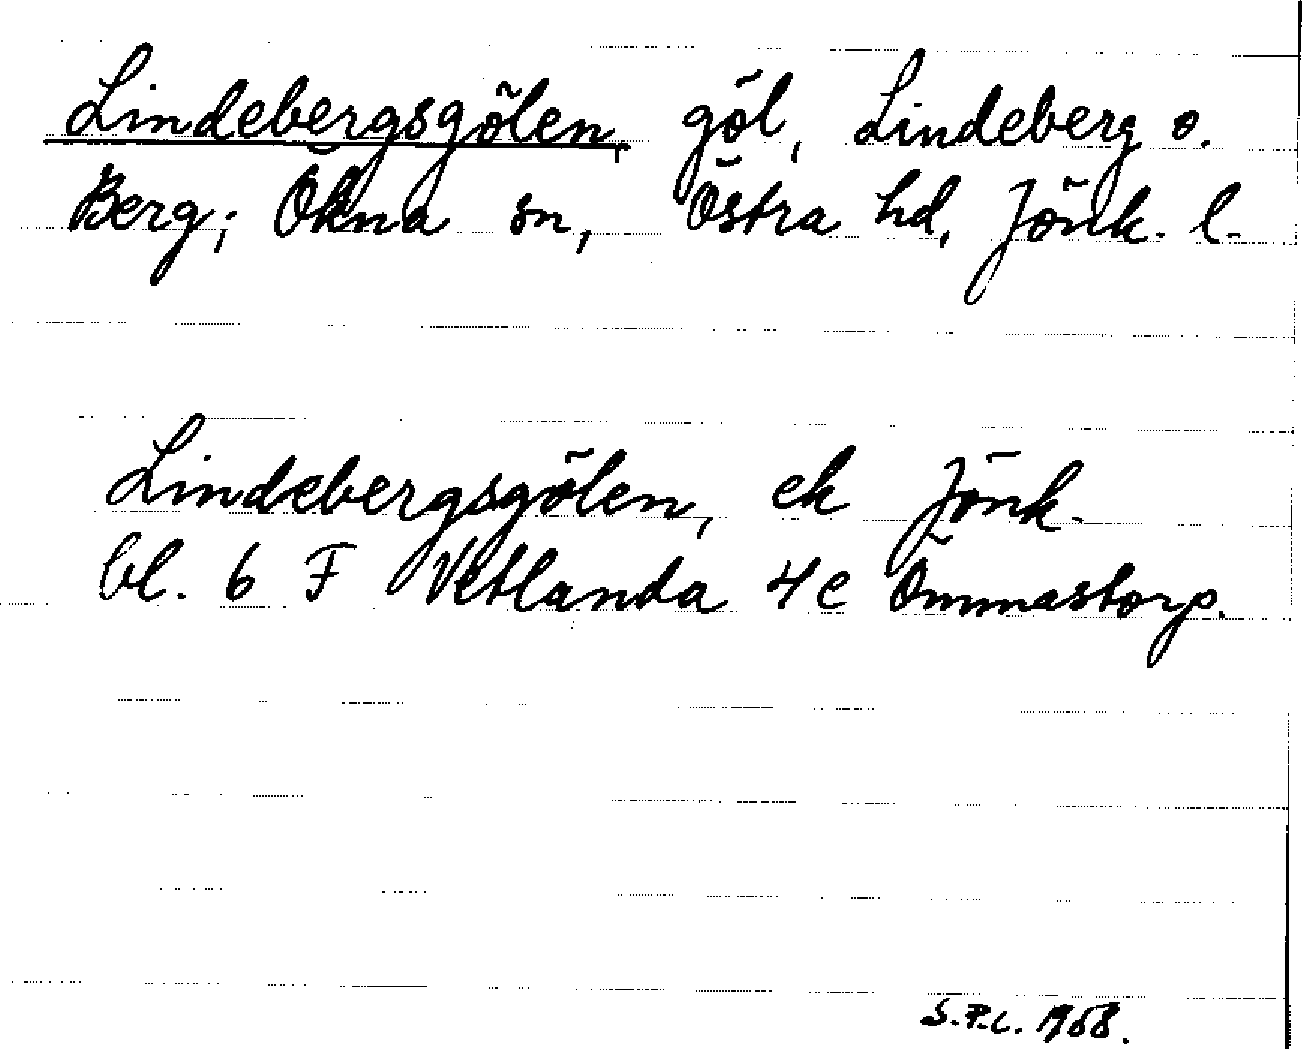 Lindebergsgölen, göl, Lindeberg o.
Berg; Ökna sn, Östra hd, Jönk. l.
Lindebergsgölen, ek Jönk.
bl. 6 F Vetlanda 4c Ömmastorp.
S.F.L. 1968.